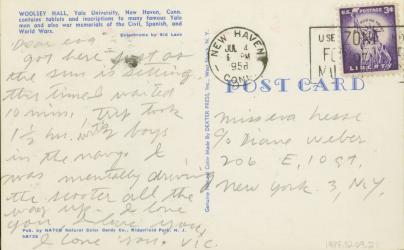 WOOLSEY HALL, Yale University, New Haven, Conn.
contains tablets and inscriptions to many famous Yale
men and also war memorials of the Civil, Spanish, and
World Wars.
Ektachrome by Sid Lane
Dear eva
got here just as
the sun is setting.
this time I waited
10 mins, trip took
1½ hr. with boys
in the navy. I
was mentally driving
the scooter all the
way up. I love
you I love you,
I love you. Vic.
Pub. by NATCO Natural Color Cards Co., Ridgefield Park, N. J.
Genuine Natural Color Made By DEXTER PRESS, Inc., West Nyack, New York
NEW HAVEN
JUL 4
PM
CONN.
USE
ZONE
U.S. POSTAGE
3¢
LIBERTY
POST CARD
miss eva hesse
c/o Diane Weber
206 E,
new york 3, N.Y.